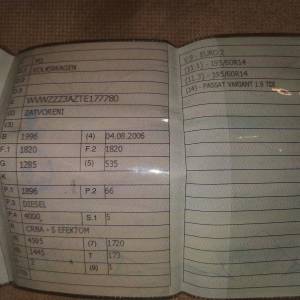 M1
VOLKSWAGEN
WVWZZZ3AZTE177780
ZATVORENI
B 1996 (4) 04.08.2006
F.1 1820 F.2 1820
G 1285 (5) 535
K
P.1 1896 P.2 66
P.3 DIESEL
P.4 4000 S.1 5
R CRNA - S EFEKTOM
4595 (7) 1720
1445 T 173
(9) 1
V.9 - EURO 2
(11.1) - 195/60R14
(11.2) - 195/60R14
(14) - PASSAT VARIANT 1.9 TDI